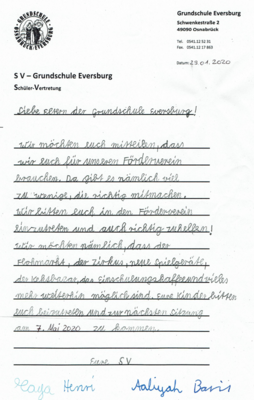 GRUNDSCHULE
EVERSBURG
Grundschule Eversburg
Schwenkestraße 2
49090 Osnabrück
Tel. 0541.12 52 31
Fax. 0541.12 17 883
Datum: 23.01.2020
S V – Grundschule Eversburg
Schüler-Vertretung
Liebe Eltern der Grundschule Eversburg!
Wir möchten euch mitteilen, dass
wir euch für unseren Förderverein
brauchen. Da gibt es nämlich viel
zu wenige, die richtig mitmachen.
Wir bitten euch in den Förderverein
einzutreten und auch richtig zu helfen!
Wir möchten nämlich, dass der
Flohmarkt, der Zirkus, neue Spielgeräte,
der Keksbazar, das Einschulungskaffee und vieles
mehr weiterhin möglich sind. Eure Kinder bitten
euch beizutreten und zur nächsten Sitzung
am 7. Mai 2020 zu kommen.
Eure SV
Henri Aaliyah